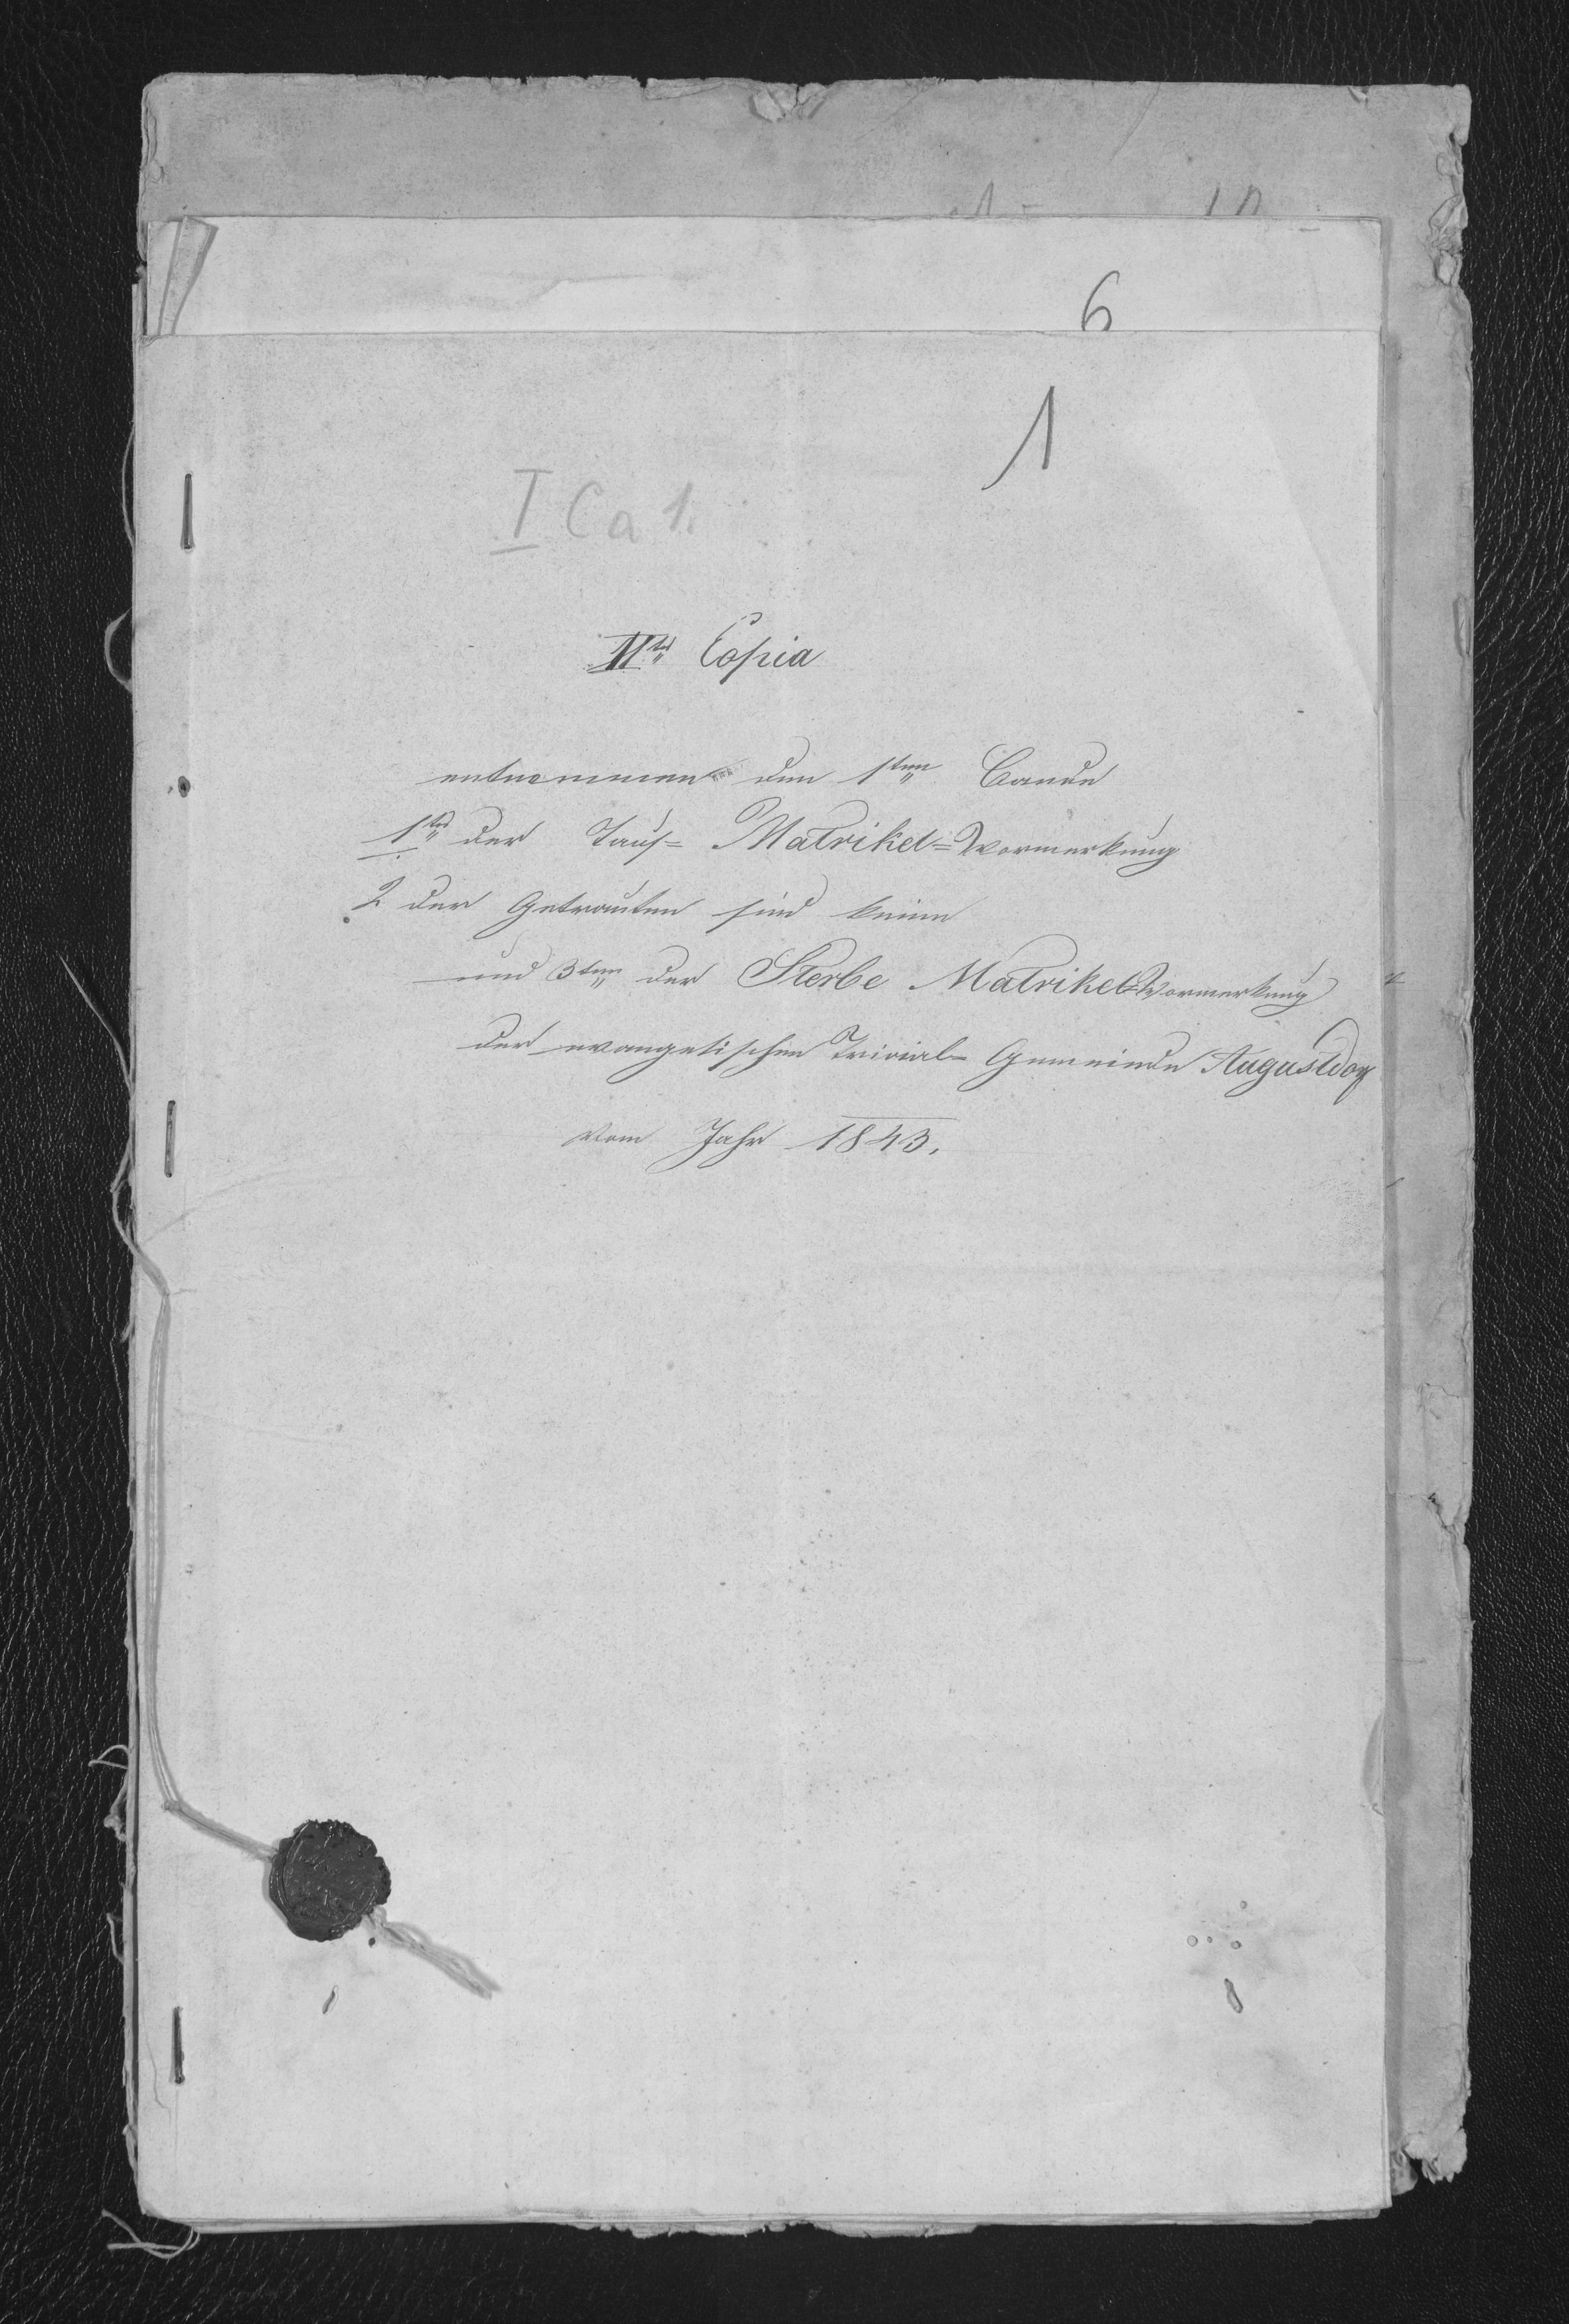 6
1
I C a 1.
IIte Copia
entnommen dem 1ten Bande
1te der Tauf= Matrikel=Vormerkung
2 der Getrauten sind keine
und 3ten der Sterbe Matrikel=Vormerkung
der evangelischen Filial= Gemeinde Augustdorf
vom Jahr 1843.